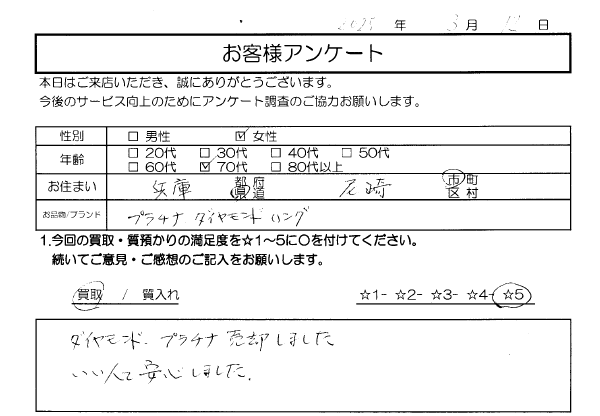 2025 年 3 月 12 日
お客様アンケート
本日はご来店いただき、誠にありがとうございます。
今後のサービス向上のためにアンケート調査のご協力お願いします。
性別 □ 男性 ☑ 女性
年齢 □ 20代 □ 30代 □ 40代 □ 50代
□ 60代 ☑ 70代 □ 80代以上
お住まい 兵庫 都府県道 尼崎 市町区村
お品物/ブランド プラチナ ダイヤモンド リング
1.今回の買取・質預かりの満足度を☆1～5に〇を付けてください。
続いてご意見・ご感想のご記入をお願いします。
買取 / 質入れ ☆1- ☆2- ☆3- ☆4- ☆5
ダイヤモンド、プラチナ売却しました
いい人で安心しました。